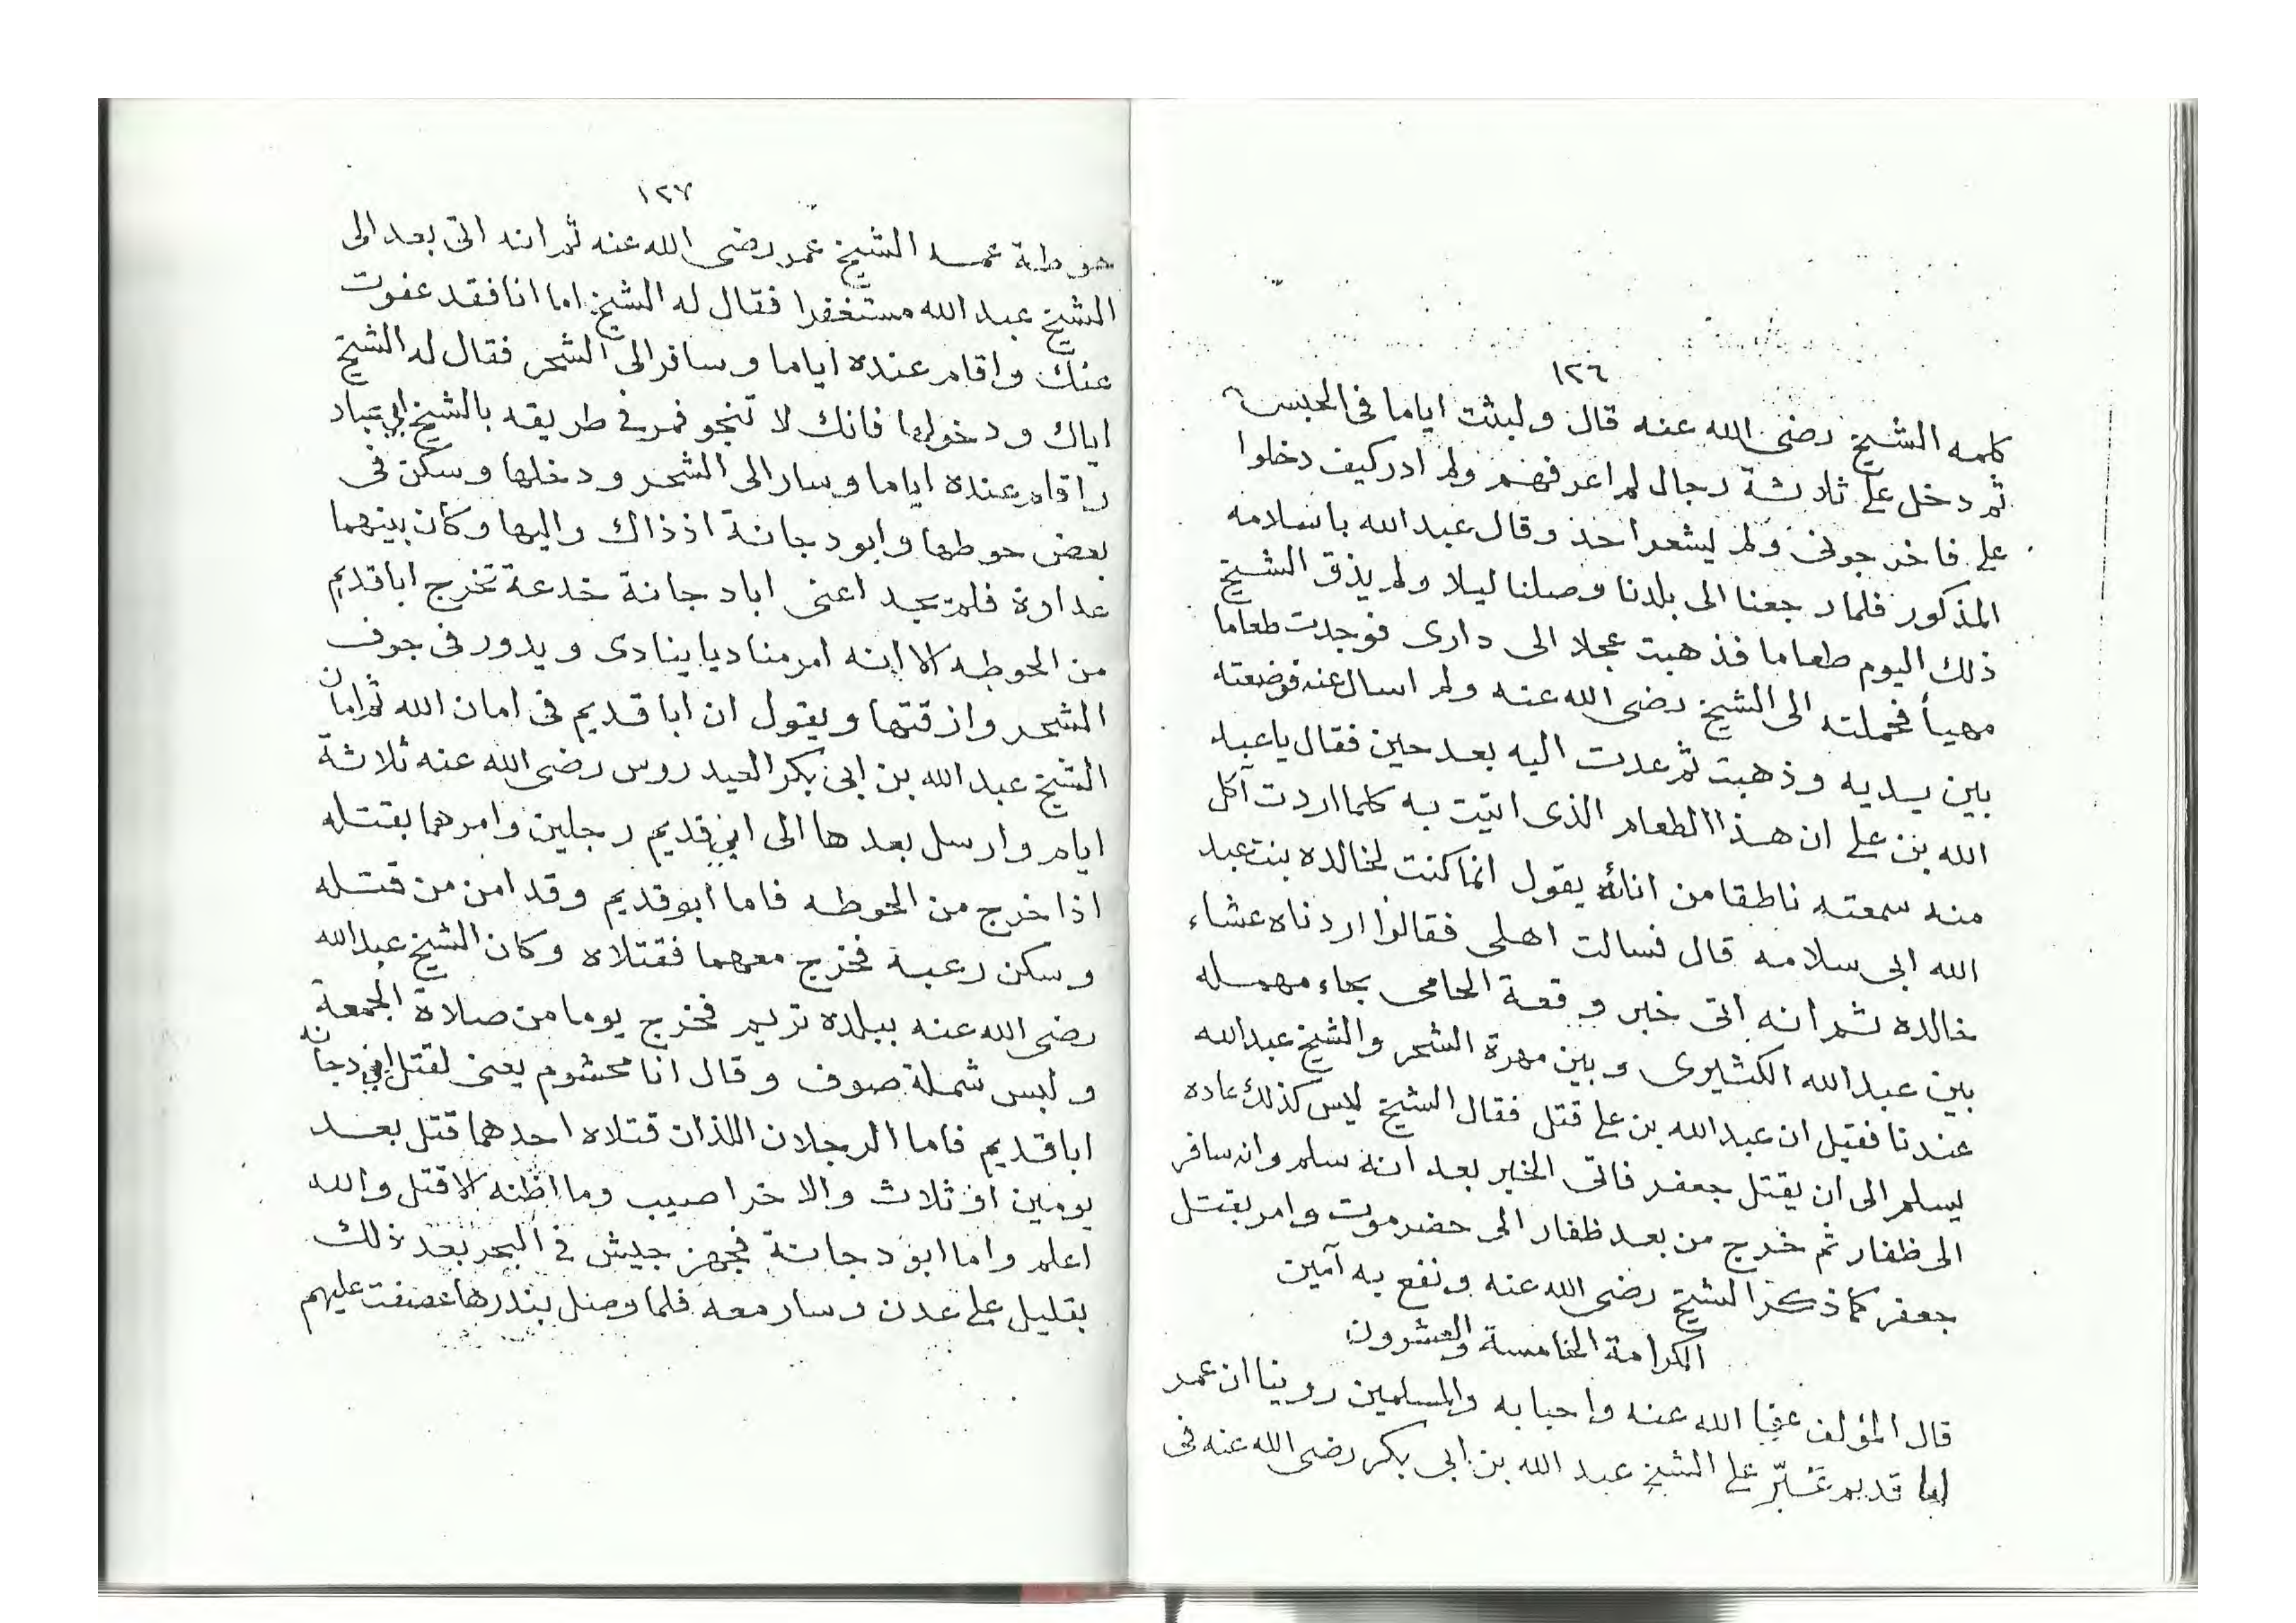 ١٢٦
كلمه الشيخ رضى الله عنه قال ولبثت اياما فى الحبس
ثم دخل على ثلاثة رجال لم اعرفهم ولم ادر كيف دخلوا
على فاخرجونى ولم يشعر احد وقال عبد الله باسلامه
المذكور فلما رجعنا الى بلدنا وصلنا ليلا ولم يذق الشيخ
ذلك اليوم طعاما فذهبت عجلا الى دارى فوجدت طعاما
مهيأ فحملته الى الشيخ رضى الله عنه ولم اسال عنه فوضعته
بين يديه وذهبت ثم عدت اليه بعد حين فقال يا عبد
الله بن على ان هذا الطعام الذى اتيت به كلما اردت آكل
منه سمعته ناطقا من انائه يقول انما كنت لخالده بنت عبد
الله ابى سلامه قال فسالت اهلى فقالوا اردناه عشاء
خالده ثم انه اتى خبر وقعة الحامى بحاء مهمله
بين عبد الله الكثيرى وبين مهرة الشحر والشيخ عبد الله
عندنا فقيل ان عبد الله بن على قتل فقال الشيخ ليس كذلك عاده
يسلم الى ان يقتل جعفر فاتى الخبر بعد انه سلم وانه سافر
الى ظفار ثم خرج من بعد ظفار الى حضرموت وامر بقتل
جعفر كما ذكر الشيخ رضى الله عنه ونفع به آمين
الكرامة الخامسة والعشرون
قال المؤلف عفا الله عنه واحبابه والمسلمين روينا ان عمر
ابا قديم غبّر على الشيخ عبد الله بن ابى بكر رضى الله عنه فى
١٢٧
حوطة عمه الشيخ عمر رضى الله عنه ثم انه اتى بعد الى
الشيخ عبد الله مستغفرا فقال له الشيخ اما انا فقد عفوت
عنك واقام عنده اياما وسافر الى الشحر فقال له الشيخ
اياك ودخولها فانك لا تنجو فمر فى طريقه بالشيخ ابى عباد
واقام عنده اياما وسار الى الشحر ودخلها وسكن فى
بعض حوطها وابو دجانة اذ ذاك واليها وكان بينهما
عداوة فلم يجد اعنى ابا دجانة خدعة تخرج ابا قديم
من الحوطه الا انه امر مناديا ينادى ويدور فى جوف
الشحر وازقتها ويقول ان ابا قديم فى امان الله ثم امان
الشيخ عبد الله بن ابى بكر العيدروس رضى الله عنه ثلاثة
ايام وارسل بعدها الى ابى قديم رجلين وامرهما بقتله
اذا خرج من الحوطه فاما ابو قديم وقد امن من قتله
وسكن رعبه فخرج معهما فقتلاه وكان الشيخ عبد الله
رضى الله عنه ببلده تريم فخرج يوما من صلاة الجمعة
ولبس شملة صوف وقال انا محشوم يعنى لقتل ابى دجانه
ابا قديم فاما الرجلان اللذان قتلاه احدهما قتل بعد
يومين او ثلاث والاخر اصيب وما اظنه الا قتل والله
اعلم واما ابو دجانة فجهز جيش فى البحر بعد ذلك
بقليل على عدن وسار معه فلما وصل بندرها عصفت عليهم